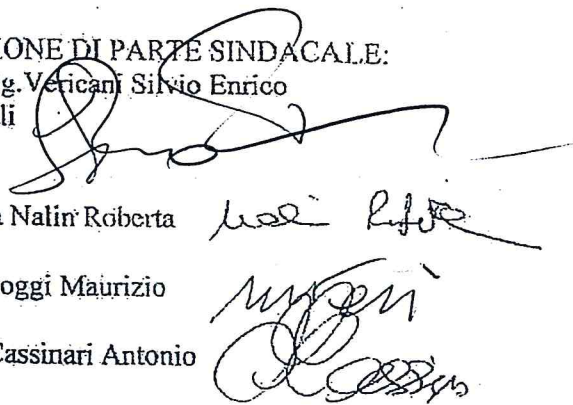 IONE DI PARTE SINDACALE:
g. Vericani Silvio Enrico
li
Nalin Roberta
oggi Maurizio
Cassinari Antonio